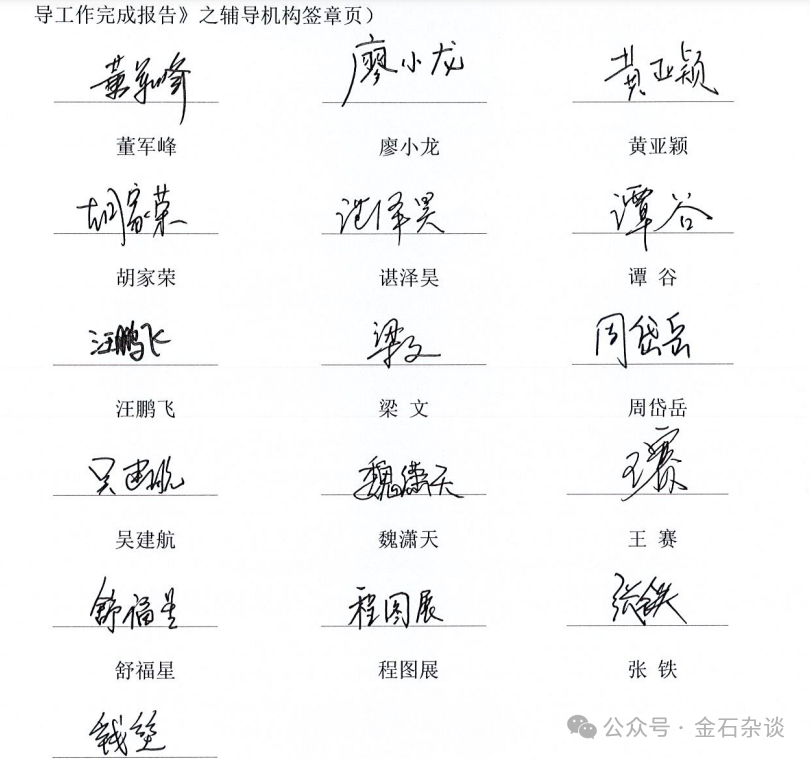 导工作完成报告》之辅导机构签章页）
董军峰 廖小龙 黄亚颖
董军峰 廖小龙 黄亚颖
胡家荣 谌泽昊 谭谷
胡家荣 谌泽昊 谭 谷
汪鹏飞 梁文 周岱岳
汪鹏飞 梁 文 周岱岳
吴建航 魏潇天 王赛
吴建航 魏潇天 王 赛
舒福星 程图展 张铁
舒福星 程图展 张 铁
公众号 · 金石杂谈